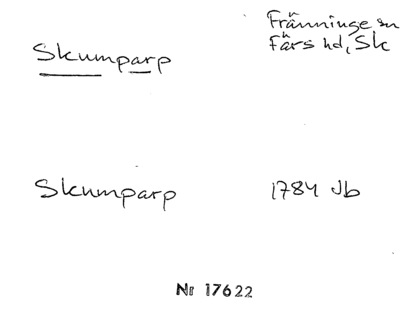 Skumparp
Fränninge sn
Färs hd, Sk
Skumparp
1784 Jb
Nr 17622